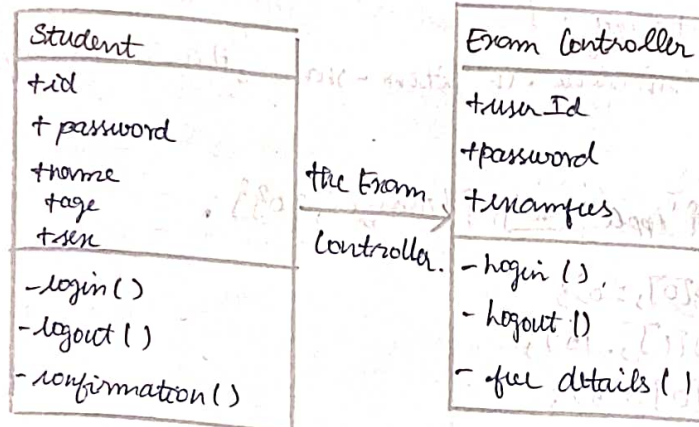 Student
+id
+ password
+name
+age
+sex
-login()
-logout()
-confirmation()
the Exam
Controller.
Exam Controller
+user Id
+password
+examfees
-Login ()
- Logout ()
- fee details ()